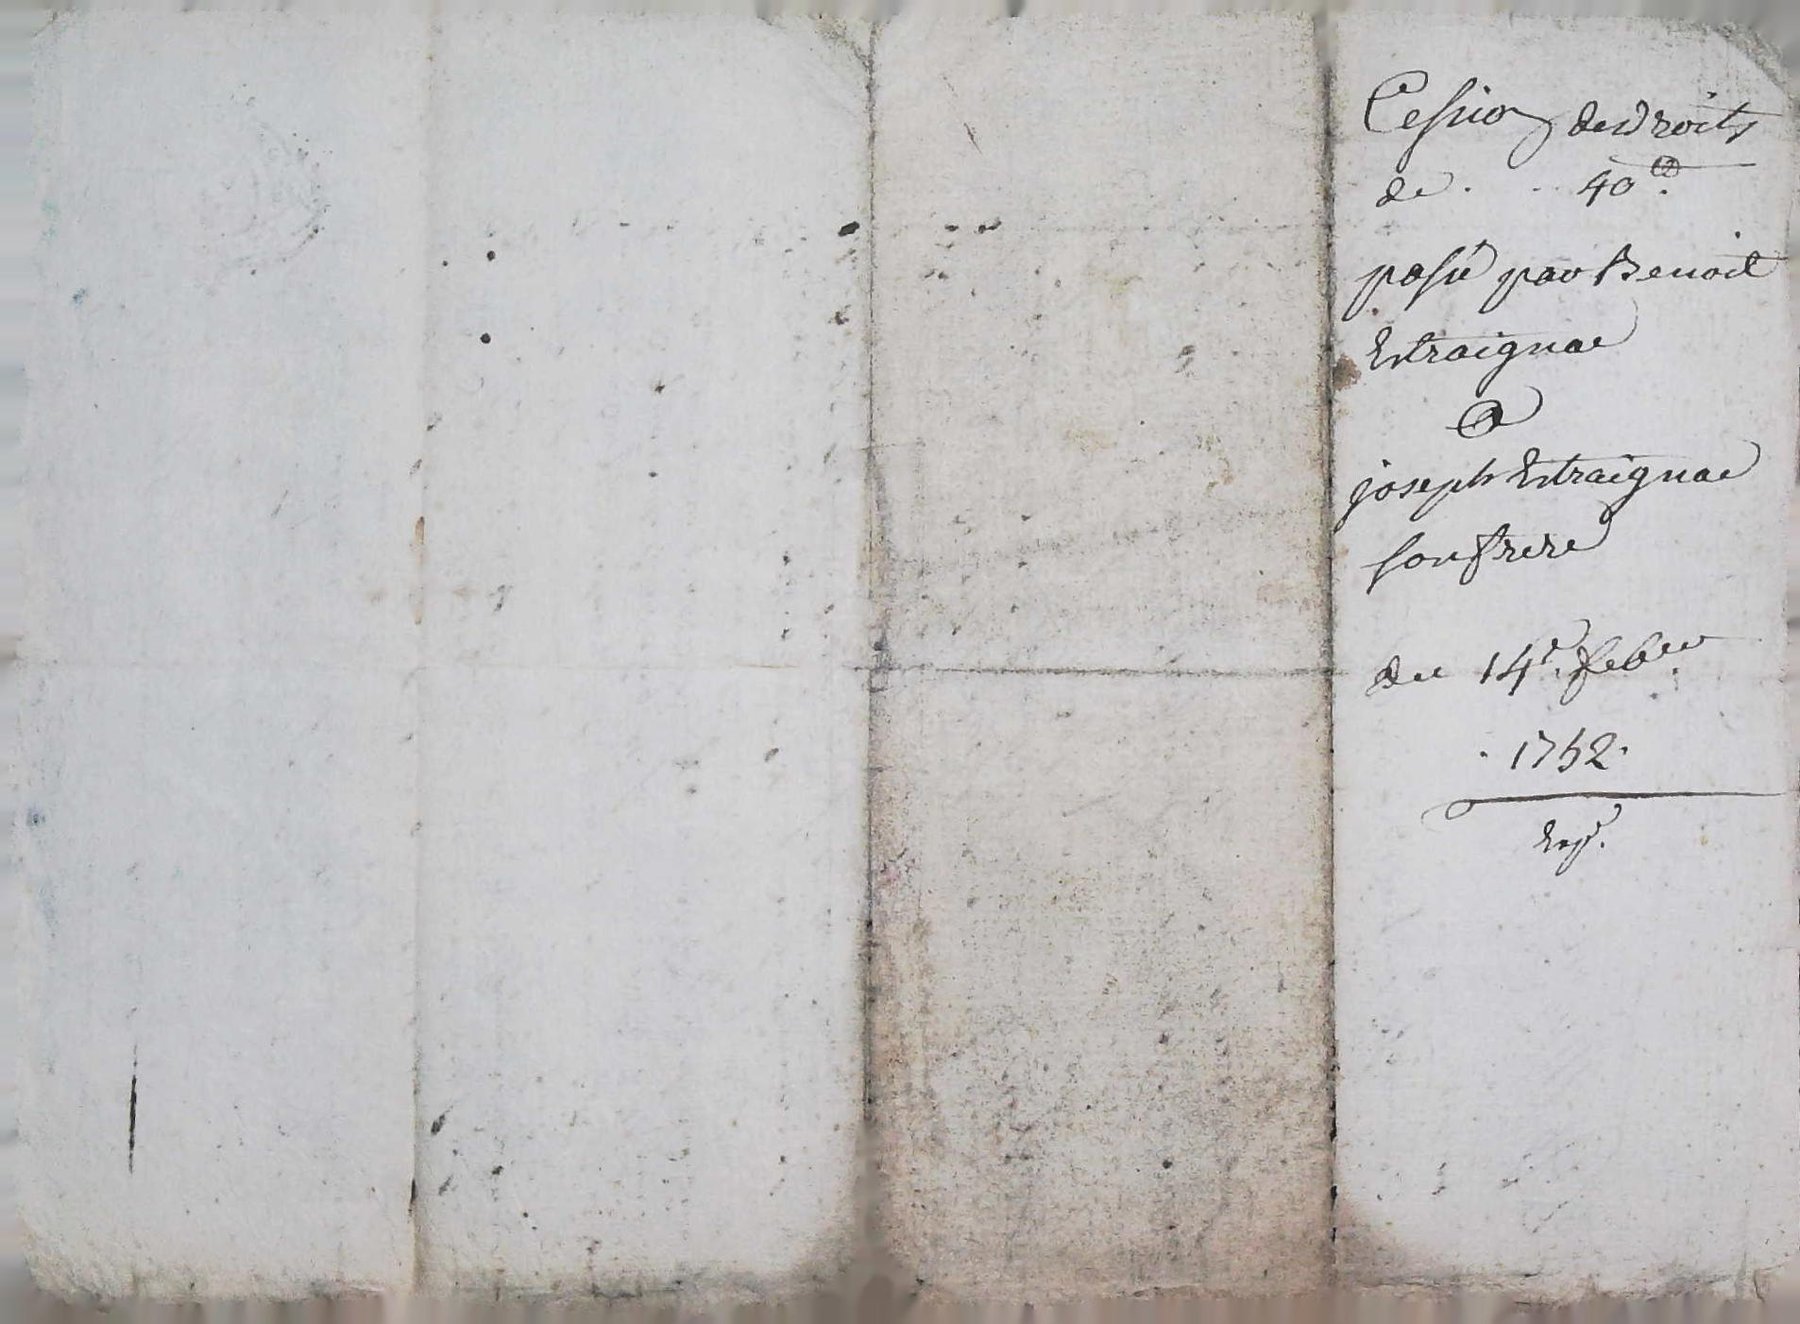 Cession des droits
de . . 40 lt.
passé par Benoit
Estraignac
a
joseph Estraignac
son frere
du 14e. feber.
. 1752 .